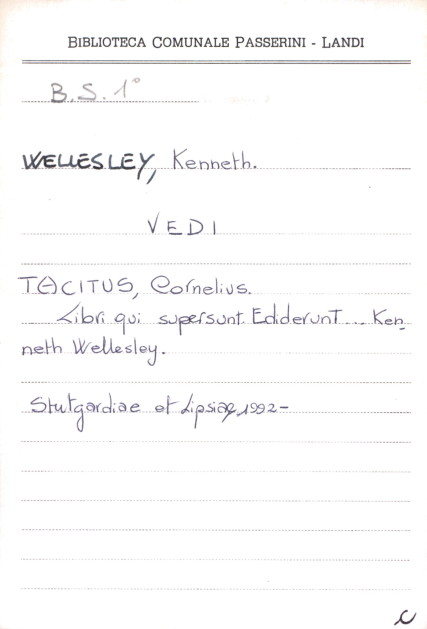 BIBLIOTECA COMUNALE PASSERINI - LANDI
B.S. 1°
WELLESLEY, Kenneth.
VEDI
TACITUS, Cornelius.
Libri qui supersunt. Ediderunt ... Ken-
neth Wellesley.
Stutgardiae et Lipsiae, 1992-